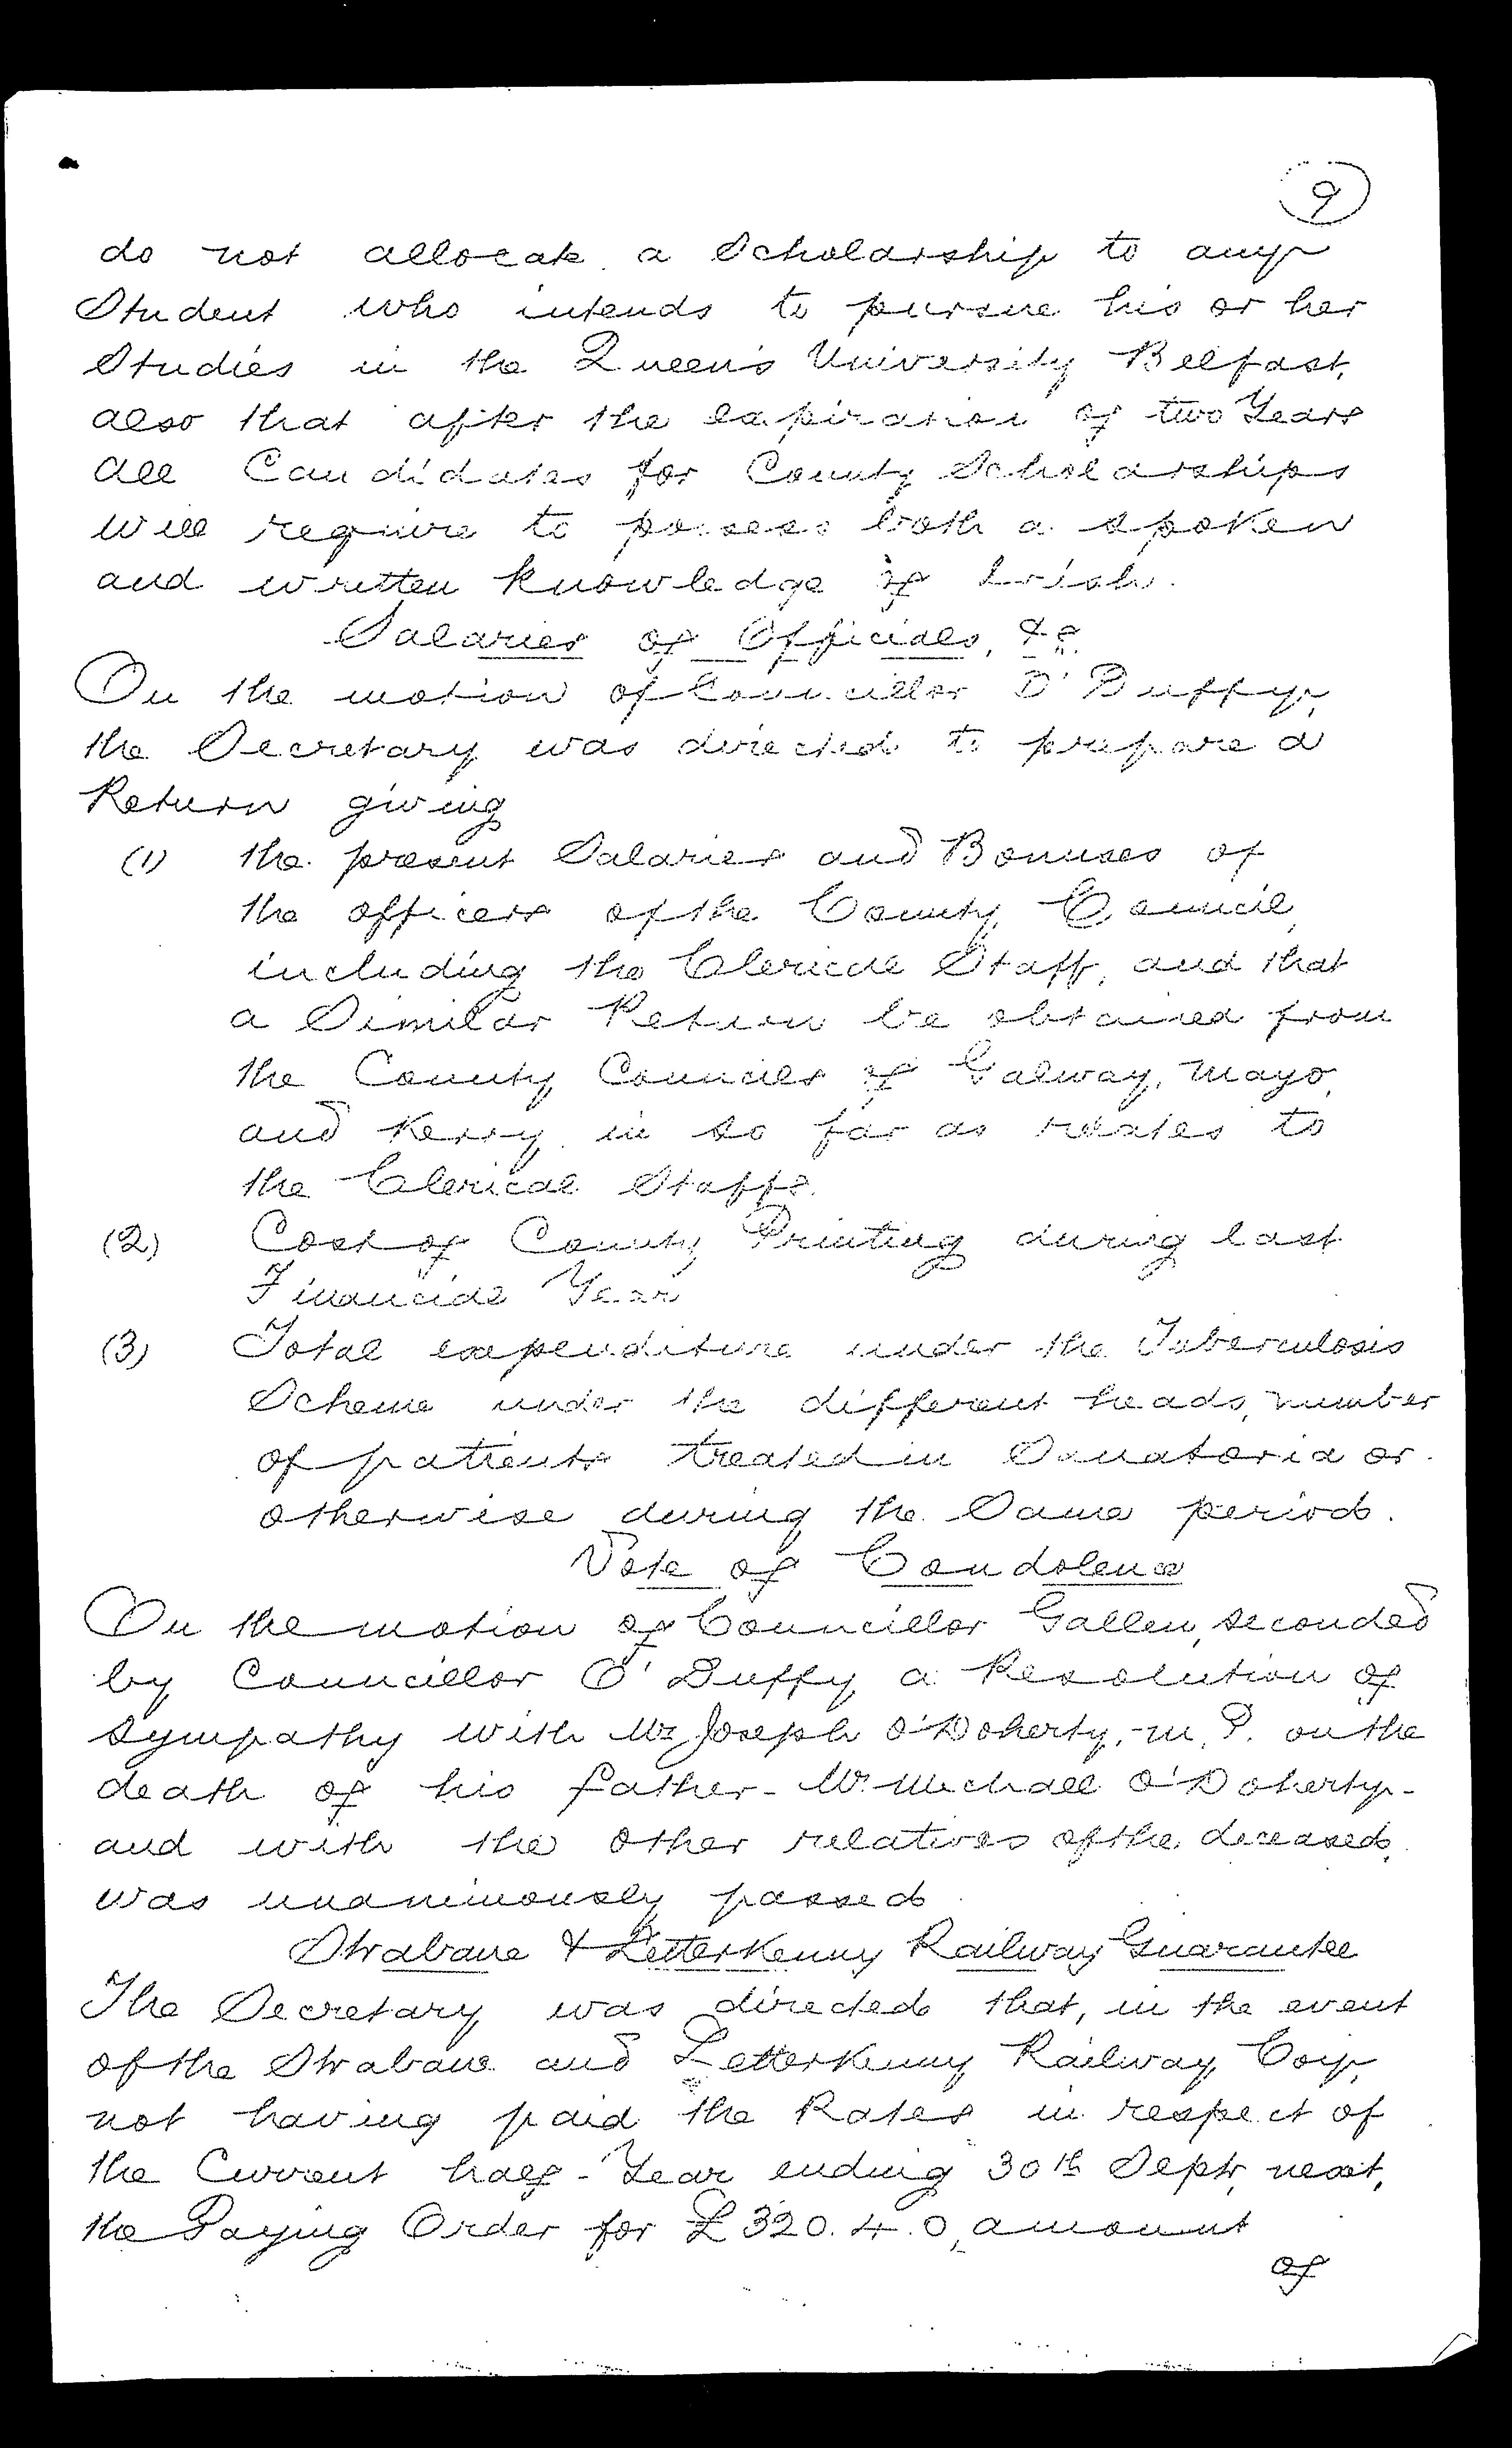 9
do not allocate a Scholarship to any
Student who intends to pursue his or her
Studies in the Queen's University Belfast,
also that after the expiration of two Years
all Candidates for County Scholarships
will require to possess both a spoken
and written knowledge of Irish.
Salaries of Officials, &c.
On the motion of Councillor O'Duffy,
the Secretary was directed to prepare a
Return giving
(1) the present Salaries and Bonuses of
the officers of the County Council,
including the Clerical Staff, and that
a Similar Return be obtained from
the County Councils of Galway, Mayo,
and Kerry in so far as relates to
the Clerical Staffs.
(2) Cost of County Printing during last
Financial Year
(3) Total expenditure under the Tuberculosis
Scheme under the different heads, number
of patients treated in Sanatoria or
otherwise during the Same period.
Vote of Condolence
On the motion of Councillor Gallen, seconded
by Councillor O'Duffy a Resolution of
Sympathy with Mr Joseph O'Doherty, M.P. on the
death of his father - Mr. Michael O'Doherty -
and with the other relatives of the deceased,
was unanimously passed.
Strabane & Letterkenny Railway Guarantee
The Secretary was directed that, in the event
of the Strabane and Letterkenny Railway Coy,
not having paid the Rates in respect of
the Current half-Year ending 30th Septr, next,
the Paying Order for £320.4.0, amount
of